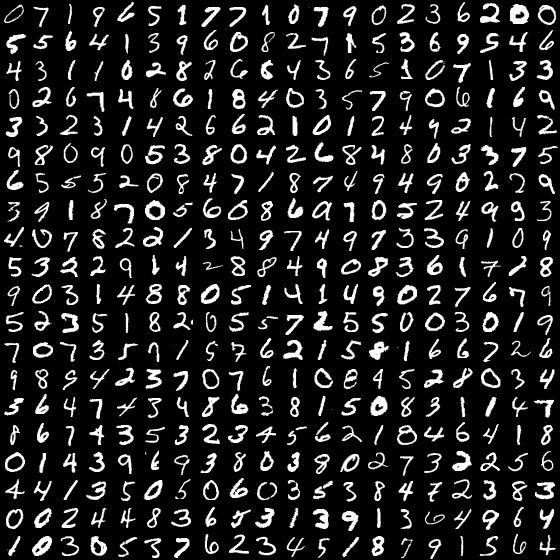 0 7 1 9 6 5 1 7 7 1 0 7 9 0 2 3 6 2 0 0
5 5 6 4 1 3 9 6 0 8 2 7 1 5 3 6 9 5 4 6
4 3 1 1 0 2 8 2 6 6 4 3 6 5 1 0 7 1 3 3
0 2 6 7 4 8 6 1 8 4 0 3 5 7 9 0 6 1 6 9
3 3 2 3 1 4 2 6 6 2 1 0 1 2 4 9 2 1 4 2
9 8 0 9 0 5 3 8 0 4 2 6 8 4 8 0 3 3 7 5
6 5 5 5 2 0 8 4 7 1 8 7 4 9 4 9 0 2 2 9
3 9 1 8 7 0 5 6 0 8 6 9 7 0 5 2 4 9 9 3
4 0 7 8 2 2 1 3 4 9 7 4 9 7 3 3 9 1 0 9
5 3 2 2 9 1 4 2 8 8 4 9 0 8 3 6 1 7 2 8
9 0 3 1 4 8 8 0 5 1 4 1 4 9 0 2 7 6 7 9
5 2 3 5 1 8 2 0 5 5 7 2 5 5 0 0 3 0 1 9
7 0 7 3 5 7 1 5 7 6 2 1 5 1 6 6 7 2 6
9 8 5 4 2 3 7 0 7 6 1 0 8 9 5 2 8 0 3 4
3 6 4 7 4 3 4 8 6 3 8 1 5 0 8 3 1 1 4 7
8 6 7 4 3 5 3 2 3 4 5 6 2 1 8 4 6 4 1 8
0 1 4 3 9 6 9 3 8 0 3 8 0 2 7 3 2 2 5 6
4 4 1 3 5 0 5 0 6 0 3 5 3 8 4 7 2 3 8 3
0 0 2 4 4 8 3 6 5 3 1 3 9 1 3 6 4 9 6 4
1 0 3 0 5 3 7 6 2 3 4 5 1 8 7 9 1 5 6 4